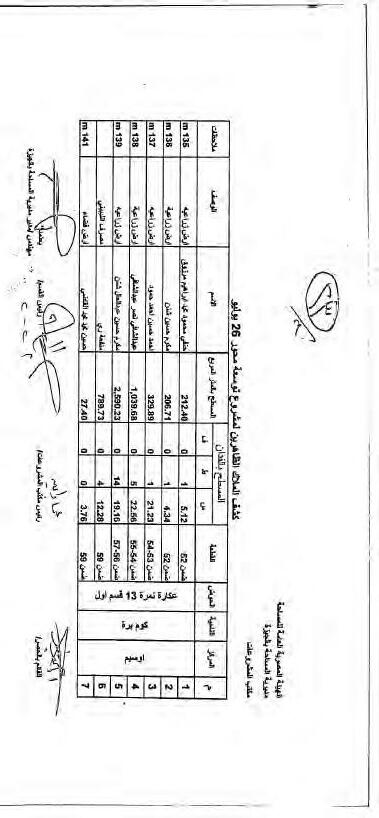 الهيئة المصرية العامة للمساحة
مديرية المساحة بالجيزة
مكتب المشروعات
كشف الملاك الظاهرين لمشروع توسعة محور 26 يوليو
م المركز الناحية الحوض القطعة المسطح بالفدان المسطح بالمتر المربع الاسم الوصف ملاحظات
س ط ف
اوسيم كوم برة عكارة نمرة 13 قسم اول
1 ضمن 52 5.12 1 0 212.40 حنفي محمود عبد ابراهيم مرزوق ارض زراعية m 135
2 ضمن 52 4.34 1 0 206.71 مكرم حسين شنن ارض زراعية m 136
3 ضمن 53-54 21.23 1 0 329.89 احمد حسين احمد حمود ارض زراعية m 137
4 ضمن 54-55 22.56 5 0 1,039.68 عبد الشافي ارض زراعية m 138
5 ضمن 56-57 19.16 14 0 2,590.23 مكرم حسين عبد العال شنن ارض زراعية m 139
6 ضمن 59 12.28 4 0 789.73 منفعة ري مصرف اللبيني
7 ضمن 59 3.76 0 0 27.40 حسين محمد عبد ارض فضاء m 141
القائم بالحصر/
رئيس مكتب المشروعات/
رئيس القسم/
يعتمد
مديرية المساحة بالجيزة